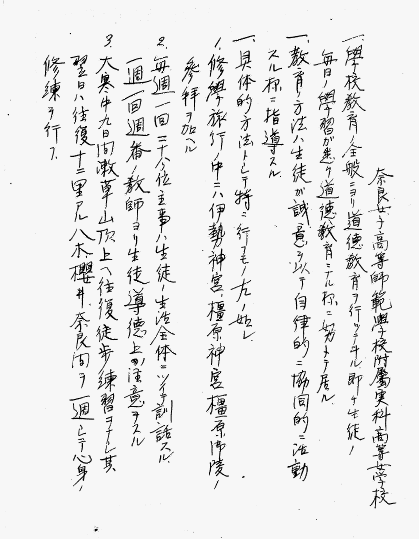 奈良女子高等師範學校附屬実科高等女学校
一、學校教育ノ全般ニヨリ道德教育ヲ行ツテヰル即チ生徒ノ
毎日ノ學習が悉ク道德教育ニナル樣ニ努メテ居ル
一、教育ノ方法ハ生徒が誠意ヲ以テ自律的ニ協同的ニ活動
スル樣ニ指導スル
一、具体的方法トシテ特ニ行フモノ左ノ如シ
1. 修學旅行ノ中ニハ伊勢神宮、橿原神宮、橿原御陵ノ
參拝ヲ加ヘル
2. 毎週一回三十分位主事ハ生徒ノ生活全体ニツイテ訓話スル
一週一回週番ノ教師ヨリ生徒ノ導德上ノ注意ヲスル
3. 大寒中九日間嫩草山頂上ヘ往復徒歩練習ヲナシ其
翌日ハ往復十二里アル八木、櫻井、奈良間ヲ一週シテ心身ノ
修練ヲ行フ